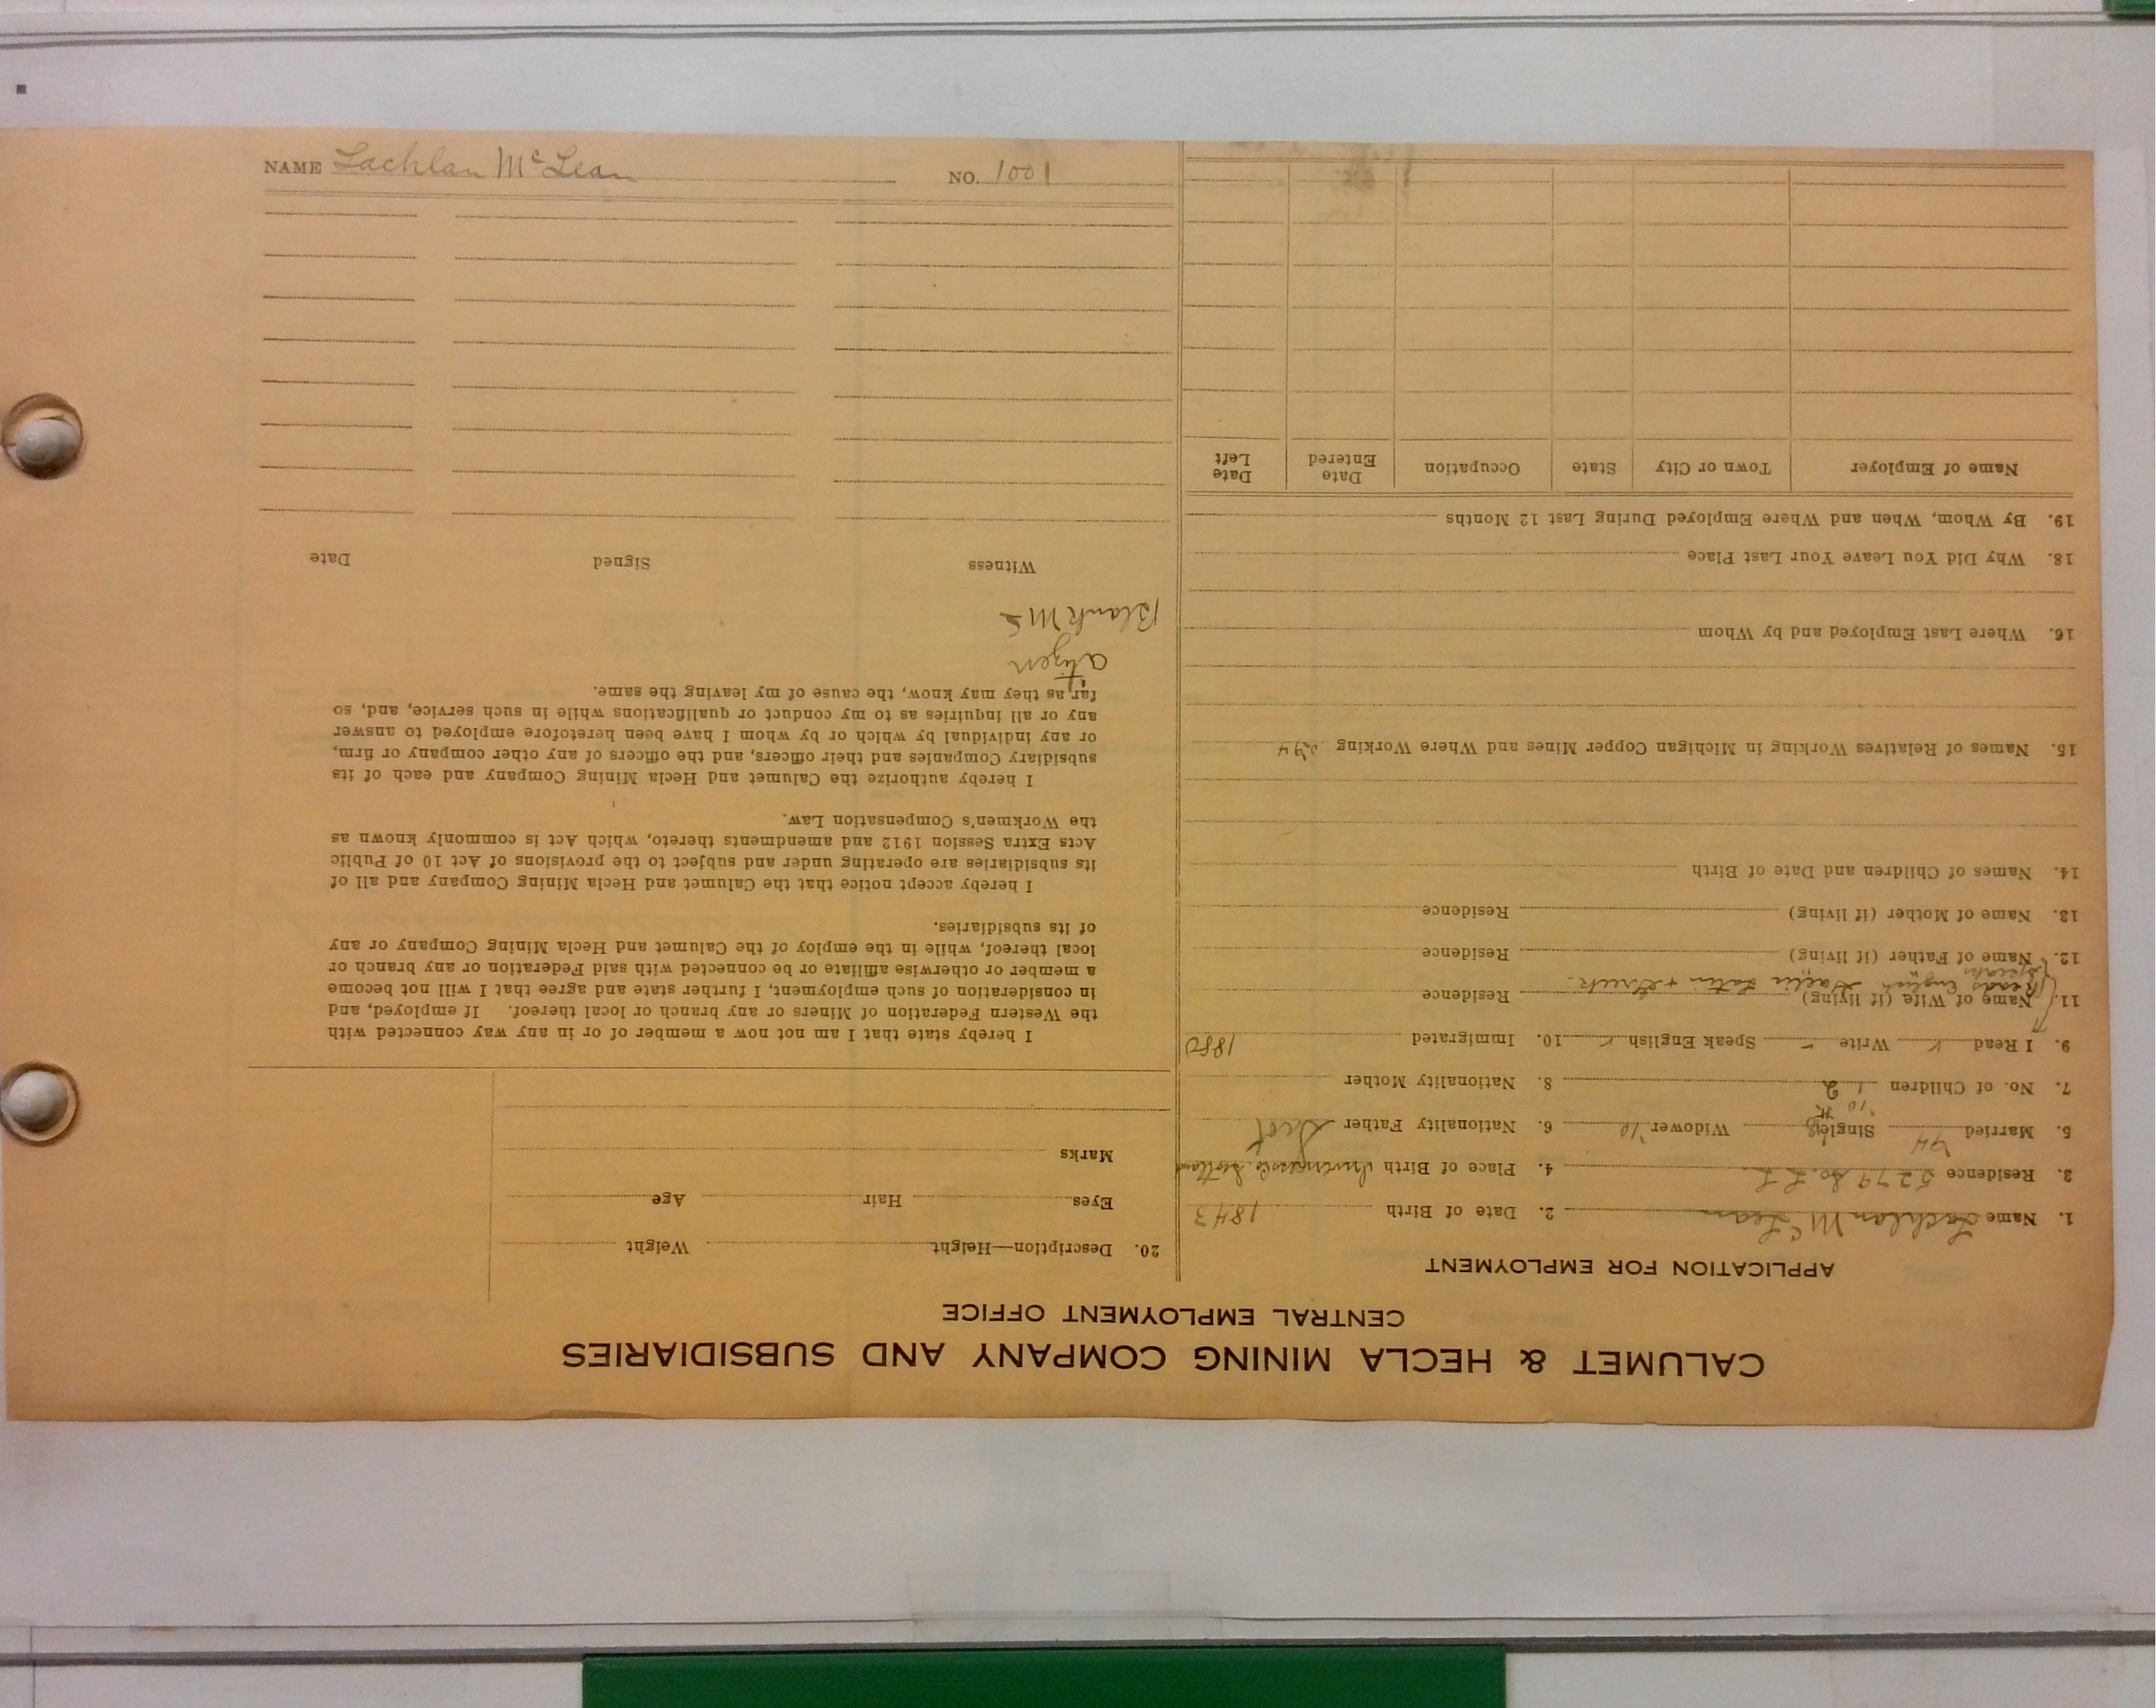 NAME Lachlan McLean NO. 1001
CALUMET & HECLA MINING COMPANY AND SUBSIDIARIES
CENTRAL EMPLOYMENT OFFICE
APPLICATION FOR EMPLOYMENT
1. Name Lachlan McLean 2. Date of Birth 1843
3. Residence 5279 4. Place of Birth Scotland
5. Married Single Widower 6. Nationality Father Scot
7. No. of Children 2 8. Nationality Mother
9. I Read Write Speak English 10. Immigrated 1880
11. Name of Wife (if living) Residence
Reads English Gaelic Latin + Greek.
Speaks
12. Name of Father (if living) Residence
13. Name of Mother (if living) Residence
14. Names of Children and Date of Birth
15. Names of Relatives Working in Michigan Copper Mines and Where Working
16. Where Last Employed and by Whom
18. Why Did You Leave Your Last Place
19. By Whom, When and Where Employed During Last 12 Months
Name of Employer Town or City State Occupation Date Entered Date Left
20. Description—Height Weight
Eyes Hair Age
Marks
I hereby state that I am not now a member of or in any way connected with
the Western Federation of Miners or any branch or local thereof. If employed, and
in consideration of such employment, I further state and agree that I will not become
a member or otherwise affiliate or be connected with said Federation or any branch or
local thereof, while in the employ of the Calumet and Hecla Mining Company or any
of its subsidiaries.
I hereby accept notice that the Calumet and Hecla Mining Company and all of
its subsidiaries are operating under and subject to the provisions of Act 10 of Public
Acts Extra Session 1912 and amendments thereto, which Act is commonly known as
the Workmen's Compensation Law.
I hereby authorize the Calumet and Hecla Mining Company and each of its
subsidiary Companies and their officers, and the officers of any other company or firm,
or any individual by which or by whom I have been heretofore employed to answer
any or all inquiries as to my conduct or qualifications while in such service, and, so
far as they may know, the cause of my leaving the same.
Citizen
Blank
Witness Signed Date